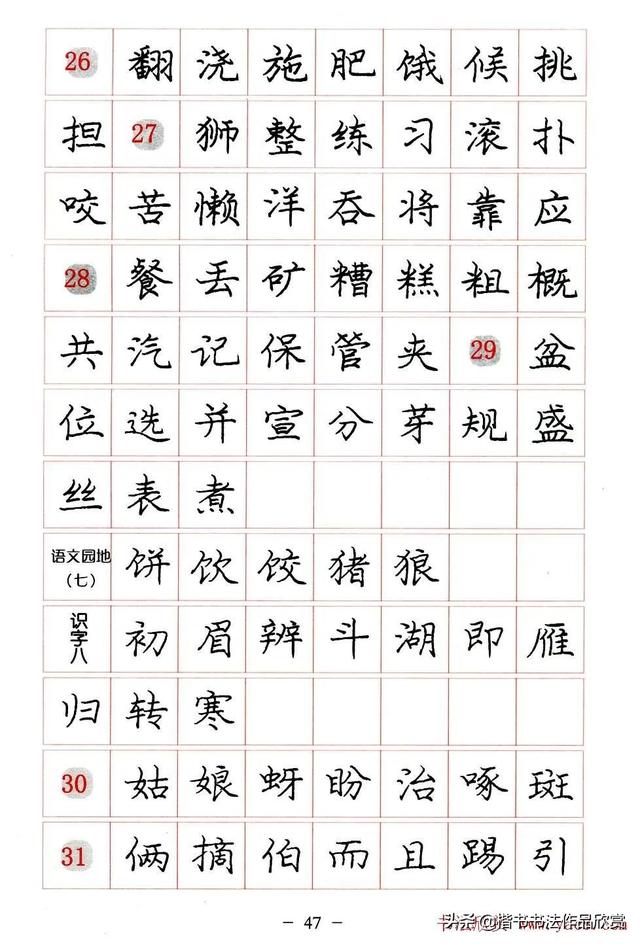 26 翻 浇 施 肥 饿 候 挑
担 27 狮 整 练 习 滚 扑
咬 苦 懒 洋 吞 将 靠 应
28 餐 丢 矿 糟 糕 粗 概
共 汽 记 保 管 夹 29 盆
位 选 并 宣 分 芽 规 盛
丝 表 煮
语文园地（七） 饼 饮 饺 猪 狼
识字八 初 眉 辨 斗 湖 即 雁
归 转 寒
30 姑 娘 蚜 盼 治 啄 斑
31 俩 摘 伯 而 且 踢 引
- 47 -
头条@楷书书法作品欣赏